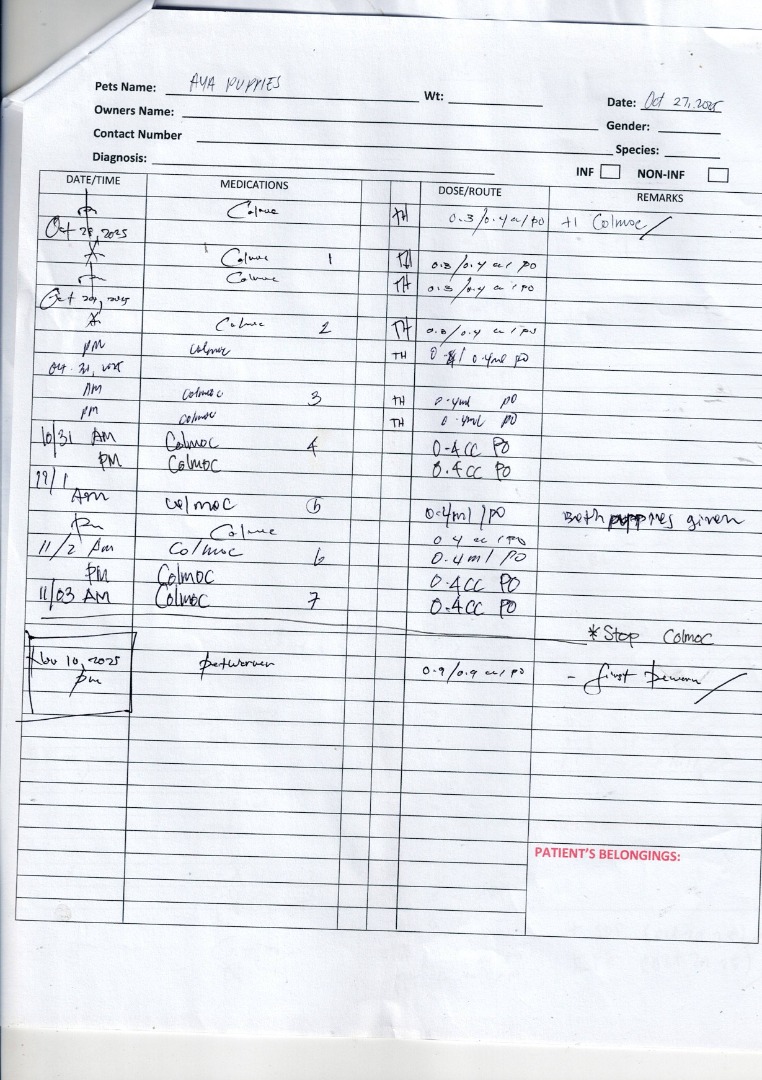 Pets Name: AYA PUPPIES Wt:
Date: Oct 27, 2025
Owners Name:
Gender:
Contact Number
Species:
Diagnosis:
INF NON-INF
DATE/TIME MEDICATIONS DOSE/ROUTE REMARKS
pm Colmoc TH 0.3/0.4 cc/po +1 Colmoc
Oct 28, 2025
Colmoc 1 TH 0.3/0.4 cc/po
pm Colmoc TH 0.3/0.4 cc/po
Oct 29, 2025
Colmoc 2 TH 0.3/0.4 cc/po
PM Colmoc TH 0.4ml po
Oct. 31, 2025
AM Colmoc 3 TH 0.4ml po
PM Colmoc TH 0.4ml po
10/31 AM Colmoc 4 0.4cc PO
PM Colmoc 0.4cc PO
11/1
Am Colmoc 5 0.4ml/po Both puppies given
pm Colmoc 0.4 cc/po
11/2 Am Colmoc 6 0.4ml/po
PM Colmoc 0.4cc PO
11/03 AM Colmoc 7 0.4cc PO
*Stop Colmoc
Nov 10, 2025 petwormer 0.9/0.9 cc/po - first Deworm
pm
PATIENT'S BELONGINGS: